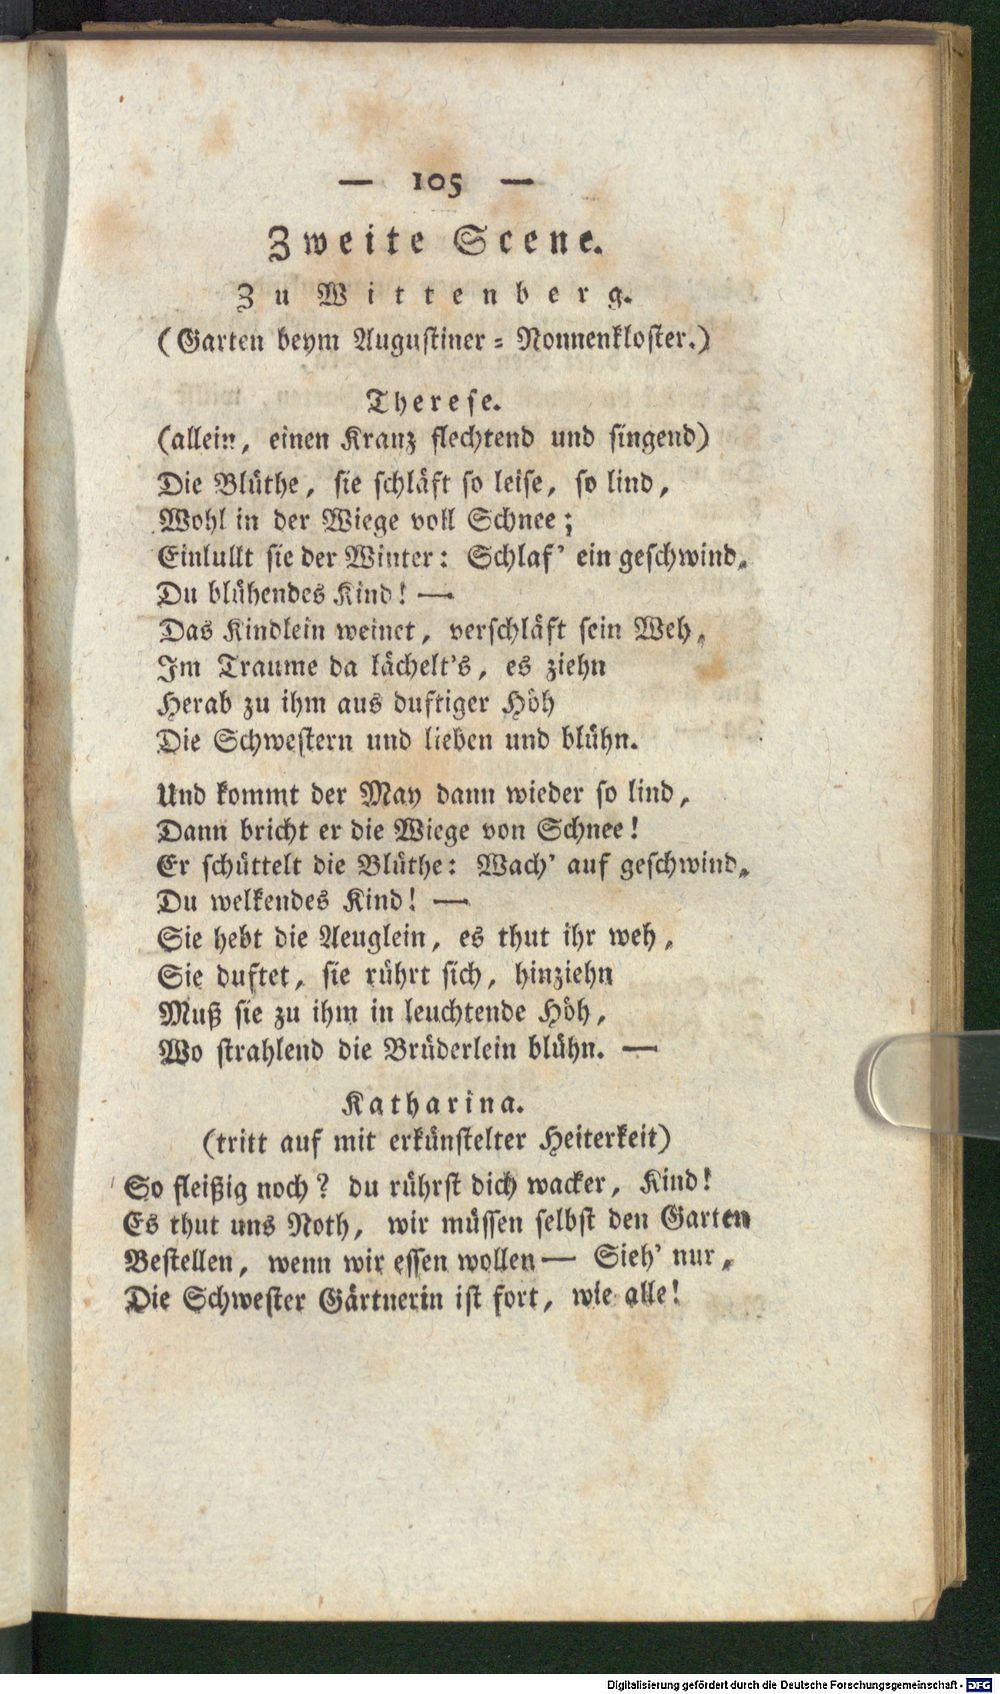 — 105 —
Zweite Scene.
Zu Wittenberg.
(Garten beym Augustiner-Nonnenkloster.)
Therese.
(allein, einen Kranz flechtend und singend)
Die Blüthe, sie schläft so leise, so lind,
Wohl in der Wiege voll Schnee;
Einlullt sie der Winter: Schlaf' ein geschwind,
Du blühendes Kind! —
Das Kindlein weinet, verschläft sein Weh,
Im Traume da lächelt's, es ziehn
Herab zu ihm aus duftiger Höh
Die Schwestern und lieben und blühn.
Und kommt der May dann wieder so lind,
Dann bricht er die Wiege von Schnee!
Er schüttelt die Blüthe: Wach' auf geschwind,
Du welkendes Kind! —
Sie hebt die Aeuglein, es thut ihr weh,
Sie duftet, sie rührt sich, hinziehn
Muß sie zu ihm in leuchtende Höh,
Wo strahlend die Brüderlein blühn. —
Katharina.
(tritt auf mit erkünstelter Heiterkeit)
So fleißig noch? du rührst dich wacker, Kind!
Es thut uns Noth, wir müssen selbst den Garten
Bestellen, wenn wir essen wollen — Sieh' nur,
Die Schwester Gärtnerin ist fort, wie alle!
Digitalisierung gefördert durch die Deutsche Forschungsgemeinschaft - DFG